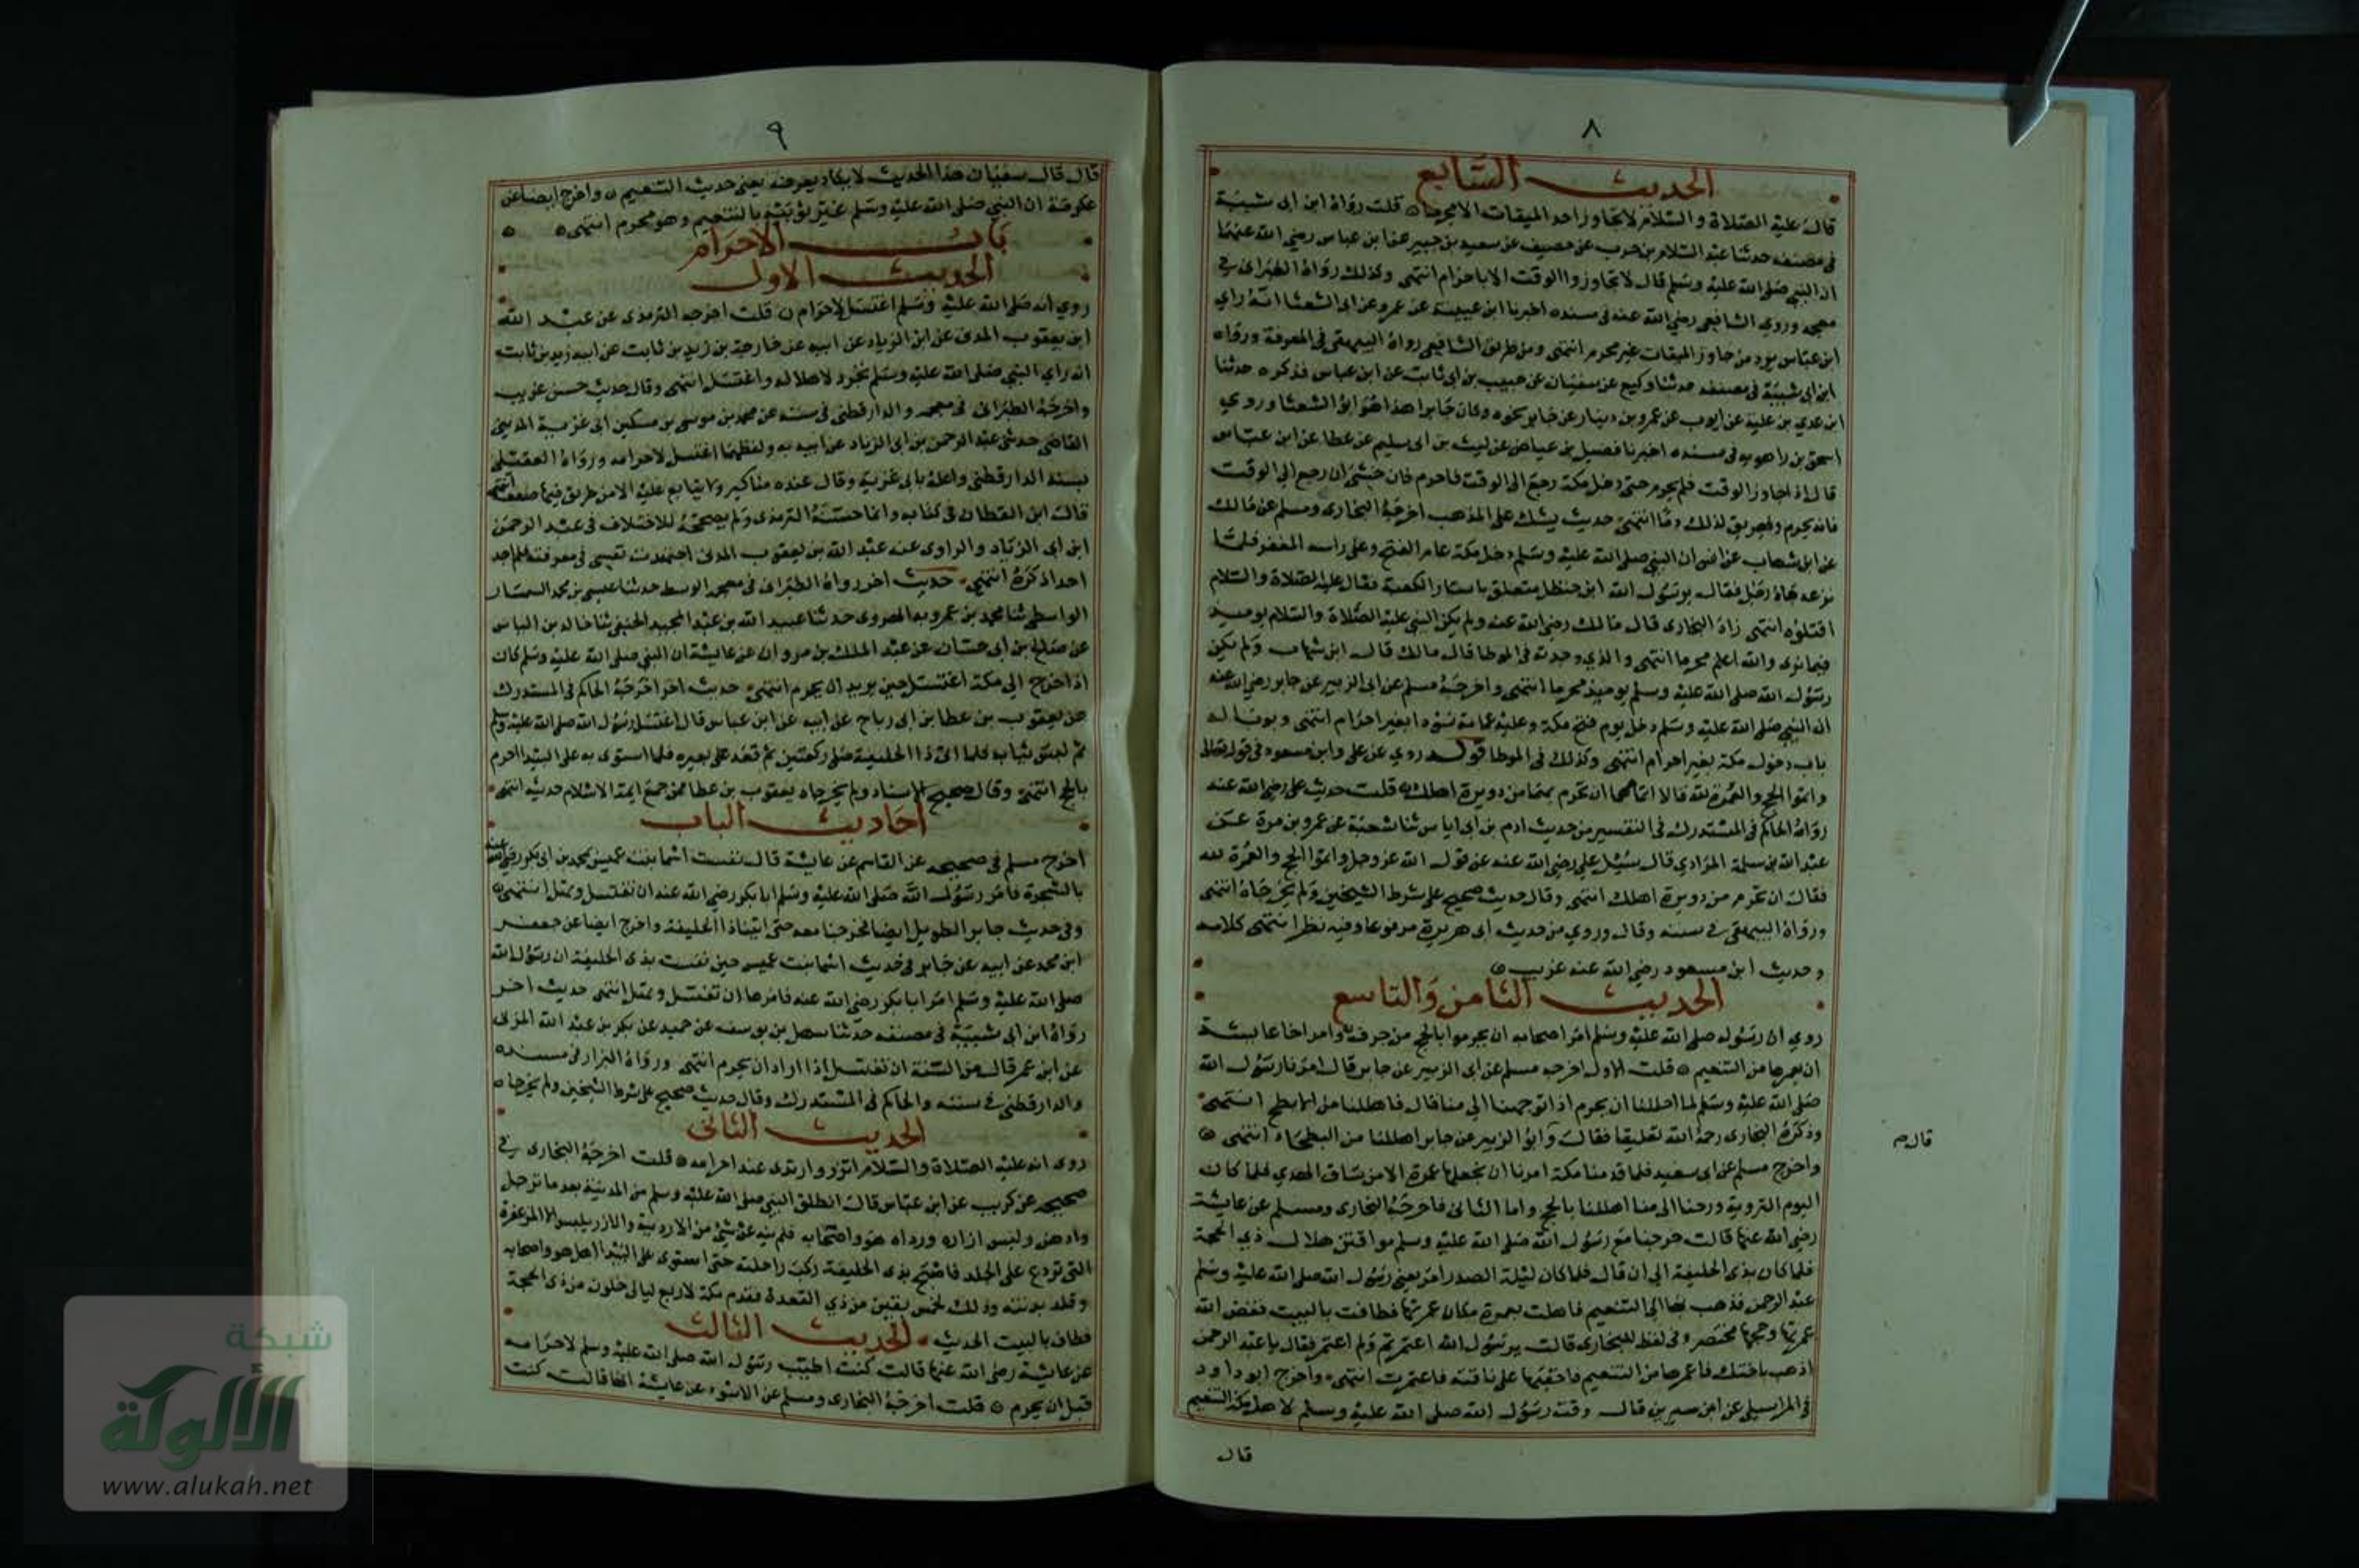 ٨
الحديث السابع
قال عليه الصلاة والسلام لا يتجاوز احد الميقات الا محرما قلت رواه ابن ابى شيبة
فى مصنفه حدثنا عبد السلام بن حرب عن خصيف عن سعيد بن جبير عن ابن عباس رضي الله عنهما
ان النبي صلى الله عليه وسلم قال لا تجاوزوا الوقت الا باحرام انتهى وكذلك رواه الطبرانى في
معجمه وروي الشافعى رضي الله عنه فى مسنده اخبرنا ابن عيينة عن عمرو عن ابى الشعثا انه راي
ابن عباس يرد من جاوز الميقات غير محرم انتهى ومن طريق الشافعي رواه البيهقى فى المعرفة ورواه
ابن ابى شيبة فى مصنفه حدثنا وكيع عن سفيان عن حبيب بن ابى ثابت عن ابن عباس فذكره حدثنا
ابن عدي بن علية عن ايوب عن عمرو بن دينار عن جابر نحوه وكان جابرا هذا هو ابو الشعثا وروي
اسحق بن راهويه فى مسنده اخبرنا فضيل بن عياض عن ليث بن ابى سليم عن عطا عن ابن عباس
قال اذا جاوز الوقت فلم يحرم حتى دخل مكة رجع الى الوقت فاحرم فان خشى ان رجع الى الوقت
فانه يحرم ويهريق لذلك دما انتهى حديث يشكل على المذهب اخرجه البخارى ومسلم عن مالك
عن ابن شهاب عن انس ان النبى صلى الله عليه وسلم دخل مكة عام الفتح وعلى راسه المغفر فلما
نزعه جاه رجل فقال يرسول الله ابن خطل متعلق باستار الكعبة فقال عليه الصلاة والسلام
اقتلوه انتهى زاد البخارى قال مالك رضى الله عنه ولم يكن النبى عليه الصلاة والسلام يوميذ
فيما نرى والله اعلم محرما انتهى والذي وجدته فى الموطا قال مالك قال ابن شهاب ولم يكن
رسول الله صلى الله عليه وسلم يوميذ محرما انتهى واخرجه مسلم عن ابى الزبير عن جابر رضى الله عنه
ان النبي صلى الله عليه وسلم دخل يوم فتح مكة وعليه عمامة سودا بغير احرام انتهى وبوبا له
باب دخول مكة بغير احرام انتهى وكذلك فى الموطا قوله روي عن على وابن مسعود فى قوله تعالى
واتموا الحج والعمرة لله قالا اتمامهما ان تحرم بهما من دويرة اهلك قلت حديث على رضى الله عنه
رواه الحاكم فى المستدرك فى التفسير من حديث ادم بن ابى اياس ثنا شعبة عن عمرو بن مرة عن
عبد الله بن سلمة المرادي قال سئل علي رضى الله عنه عن قول الله عز وجل واتموا الحج والعمرة لله
فقال ان تحرم من دويرة اهلك انتهى وقال حديث صحيح على شرط الشيخين ولم يخرجاه انتهى
ورواه البيهقى في سننه وقال وروي من حديث ابى هريرة مرفوعا وفيه نظر انتهى كلامه
وحديث ابن مسعود رضي الله عنه غريب
الحديث الثامن والتاسع
روي ان رسول صلى الله عليه وسلم امر اصحابه ان يحرموا بالحج من جوف وامر اخا عايشة
ان يعمرها من التنعيم قلت الاول اخرجه مسلم عن ابى الزبير عن جابر قال امرنا رسول الله
صلى الله عليه وسلم لما احللنا ان نحرم اذا توجهنا الى منا قال فاهللنا من الابطح انتهى
وذكره البخارى رحمه الله تعليقا فقال وابو الزبير عن جابر اهللنا من البطحاء انتهى
قال م
واخرج مسلم عن ابى سعيد فلما قدمنا مكة امرنا ان نجعلها عمرة الا من ساق الهدي فلما كان
اليوم التروية ورحنا الى منا اهللنا بالحج واما الثانى فاخرجه البخارى ومسلم عن عايشة
رضى الله عنها قالت خرجنا مع رسول الله صلى الله عليه وسلم موافين هلال ذي الحجة
فلما كان بذى الحليفة الى ان قال فلما كان ليلة الصدر امر يعنى رسول الله صلى الله عليه وسلم
عبد الرحمن فذهب بها الى التنعيم فاهلت بعمرة مكان عمرتها فطافت بالبيت فقضى الله
عمرتها وحجها مختصر وفى لفظ للبخارى قالت يرسول الله اعتمرتم ولم اعتمر فقال يا عبد الرحمن
اذهب باختك فاعمرها من التنعيم فاحقبها على ناقته فاعتمرت انتهى واخرج ابو داود
فى المراسيل عن ابن سيرين قال وقت رسول الله صلى الله عليه وسلم لاهل مكة التنعيم
قال
٩
قال قال سفيان هذا الحديث لا يكاد يعرف يعنى حديث التنعيم واخرج ايضا عن
عكرمة ان النبي صلى الله عليه وسلم بالتنعيم وهو محرم انتهى
باب الاحرام
الحديث الاول
روي انه صلى الله عليه وسلم اغتسل لاحرامه قلت اخرجه الترمذى عن عبد الله
ابن يعقوب المدنى عن ابن ابى الزياد عن ابيه عن خارجة بن زيد بن ثابت عن ابيه زيد بن ثابت
انه راى النبي صلى الله عليه وسلم تجرد لاهلاله واغتسل انتهى وقال حديث حسن غريب
واخرجه الطبرانى فى معجمه والدارقطنى فى سننه عن محمد بن موسى بن مسكين ابى غزية المدينى
القاضى حدثنى عبد الرحمن بن ابى الزناد عن ابيه به ولفظهما اغتسل لاحرامه ورواه العقيلى
بسند الدارقطنى واعله بابى غزية وقال عنده مناكير ولا يتابع عليه الا من طريق فيها ضعف انتهى
قال ابن القطان فى كتابه وانما حسنه الترمذى ولم يصححه للاختلاف فى عبد الرحمن
ابن ابى الزناد والراوى عنه عبد الله بن يعقوب المدنى اجتهدت نفسى فى معرفته فلم اجد
احدا ذكره انتهى حديث اخر رواه الطبرانى فى معجمه الوسط حدثنا عيسى بن محمد السمسار
الواسطى ثنا محمد بن عمرويه الهروى حدثنا عبيد الله بن عبد المجيد الحنفى ثنا خالد بن الياس
عن صالح بن ابى حسان عن عبد الملك بن مروان عن عايشة ان النبي صلى الله عليه وسلم كان
اذا خرج الى مكة اغتسل حين يريد ان يحرم انتهى حديث اخر اخرجه الحاكم فى المستدرك
عن يعقوب بن عطا بن ابى رباح عن ابيه عن ابن عباس قال اغتسل رسول الله صلى الله عليه وسلم
ثم لبس ثيابه فلما اتى ذا الحليفة صلى ركعتين ثم قعد على بعيره فلما استوى به على البيدا احرم
بالحج انتهى وقال صحيح الاسناد ولم يخرجاه يعقوب بن عطا ممن جمع ايمة الاسلام حديثه انتهى
احاديث الباب
اخرج مسلم فى صحيحه عن القاسم عن عايشة قال نفست اسما بنت عميس بمحمد بن ابى بكر رضى الله عنه
بالشجرة فامر رسول الله صلى الله عليه وسلم ابا بكر رضى الله عنه ان تغتسل وتهل انتهى
وفى حديث جابر الطويل ايضا فخرجنا معه حتى اتينا ذا الحليفة واخرج ايضا عن جعفر
ابن محمد عن ابيه عن جابر فى حديث اسما بنت عميس حين نفست بذى الحليفة ان رسول الله
صلى الله عليه وسلم امر ابا بكر رضى الله عنه فامرها ان تغتسل وتهل انتهى حديث اخر
رواه ابن ابى شيبة فى مصنفه حدثنا سهل بن يوسف عن حميد عن بكر بن عبد الله المزنى
عن ابن عمر قال من السنة ان تغتسل اذا اراد ان يحرم انتهى ورواه البزار فى مسنده
والدارقطنى فى سننه والحاكم فى المستدرك وقال حديث صحيح على شرط الشيخين ولم يخرجاه
الحديث الثانى
روى انه عليه الصلاة والسلام اتزر وارتدى عند احرامه قلت اخرجه البخارى في
صحيحه عن كريب عن ابن عباس قال انطلق النبى صلى الله عليه وسلم من المدينة بعد ما ترجل
وادهن ولبس ازاره ورداه هو واصحابه فلم ينه عن شئ من الاردية والازر يلبس الا المزعفرة
التى تردع على الجلد فاصبح بذى الحليفة ركب راحلته حتى استوى على البيدا اهل هو واصحابه
وقلد بدنته وذلك لخمس بقين من ذي القعدة فقدم مكة لاربع ليالى خلون من ذى الحجة
فطاف بالبيت الحديث الحديث الثالث
عن عايشة رضى الله عنها قالت كنت اطيب رسول الله صلى الله عليه وسلم لاحرامه
قبل ان يحرم قلت اخرجه البخارى ومسلم عن الاسود عن عايشة انها قالت كنت
شبكة
الألوكة
www.alukah.net